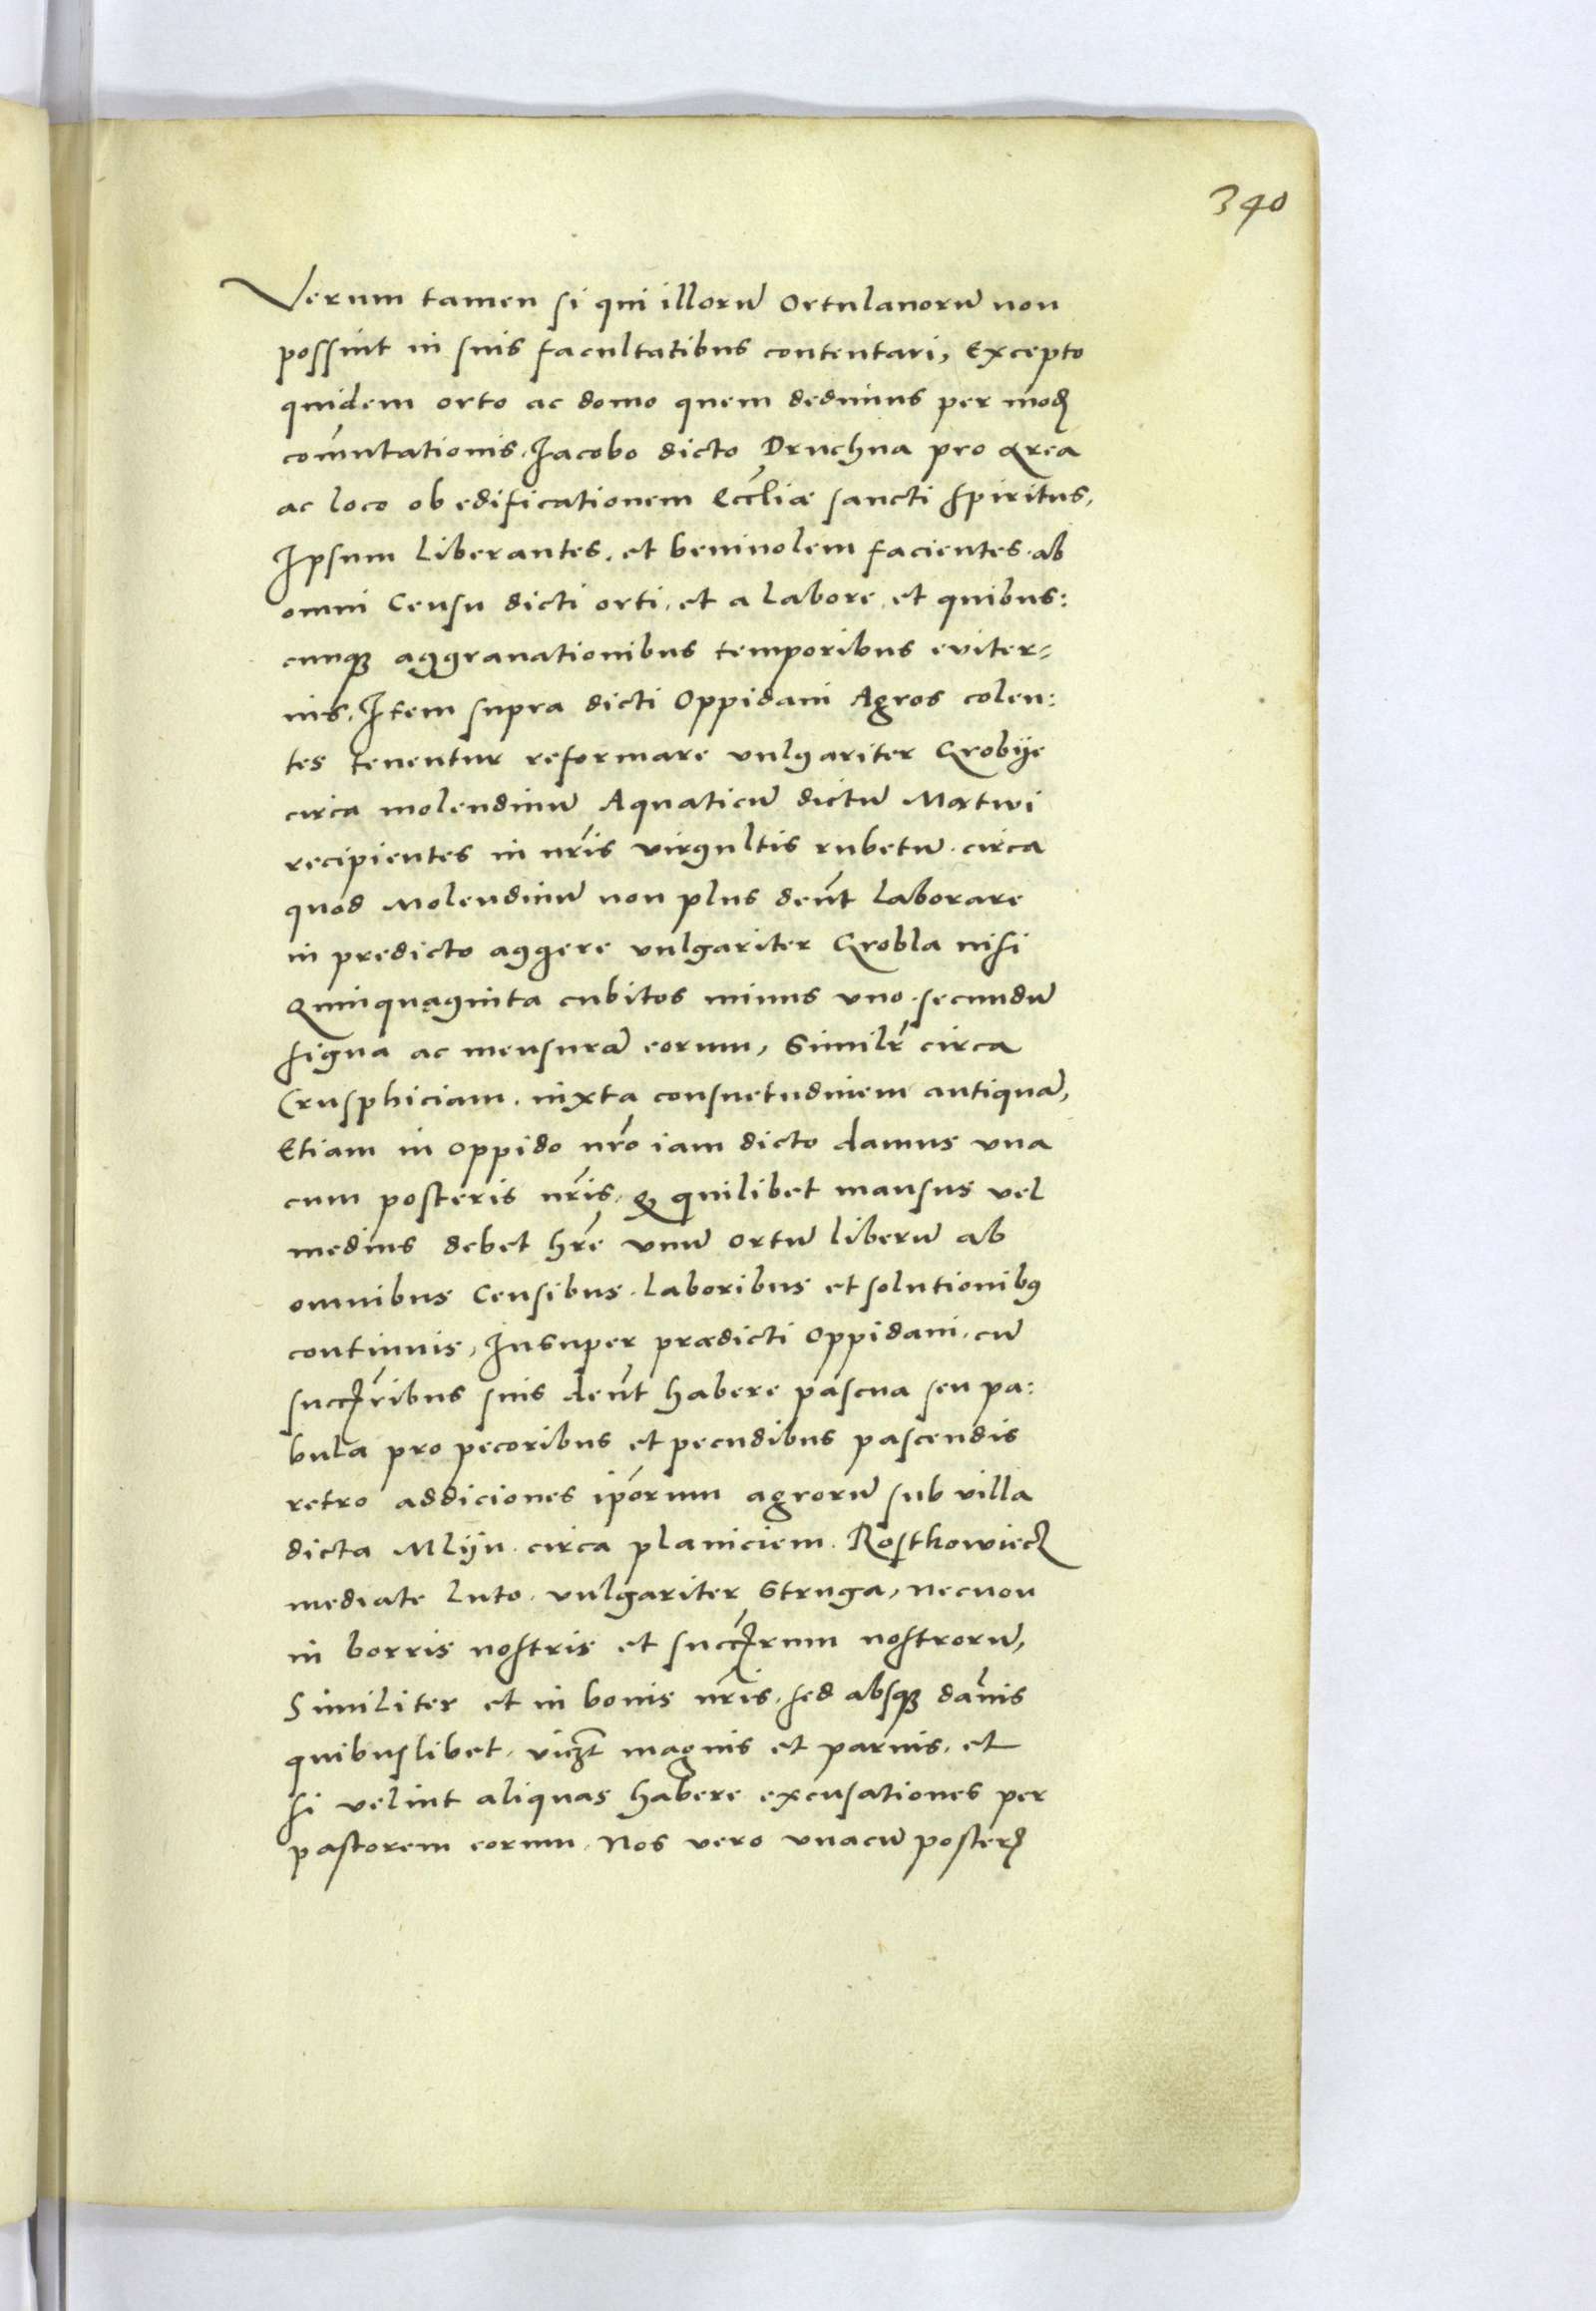 340
Verum tamen si qui illorū Ortulanorū non
possint in suis facultatibus contentari, Excepto
quidem orto ac domo quem dedimus per modꝫ
com̄utationis. Iacobo dicto Druchna pro area
ac loco ob edificationem Eccl̄iæ sancti spiritus,
Ipsum liberantes. et beniuolem facientes. ab
omni Censu dicti orti. et a labore. et quibus:
cunqꝫ aggrauationibus temporibus euiter⸗
nis. Item supra dicti Oppidani Agros colen:
tes tenentur reformare vulgariter Grobÿe
circa molendinū Aquaticū dictū Matwi
recipientes in nr̄is virgultis rubetū. circa
quod Molendinū non plus deñt laborare
in predicto aggere vulgariter Grobla nisi
Quinquaginta cubitos minus vno. secundū
signa ac mensurā eorum, Similr̄ circa
Crusphiciam. iuxta consuetudinem antiquā,
Etiam in oppido nr̄o iam dicto damus vna
cum posteris nr̄is. ꝙ quilibet mansus vel
medius debet hr̄e vnū ortū liberū ab
omnibus Censibus. laboribus et solutionibꝰ
continuis, Insuper prædicti Oppidani. cū
succr̄ibus suis deñt habere pascua seu pa:
bula pro pecoribus et pecudibus pascendis
retro addiciones ip̄orum agrorū sub villa
dicta Mlÿn. circa planiciem. Rosthowiecz
mediate luto. vulgariter Struga, necnon
in borris nostris et succr̄um nostrorū,
Similiter et in bonis nr̄is. sed absqꝫ dam̄is
quibuslibet. vicꝫt magnis et paruis. et
si velint aliquas habere excusationes per
pastorem eorum. Nos vero vnacū posterꝫ